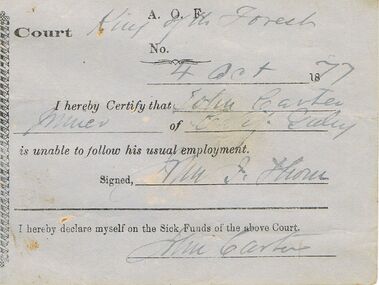 A. O. F.
Court King of the Forest
No.
4 Oct 1877
I hereby Certify that John Carter
Miner of
is unable to follow his usual employment.
Signed,
I hereby declare myself on the Sick Funds of the above Court.
John Carter